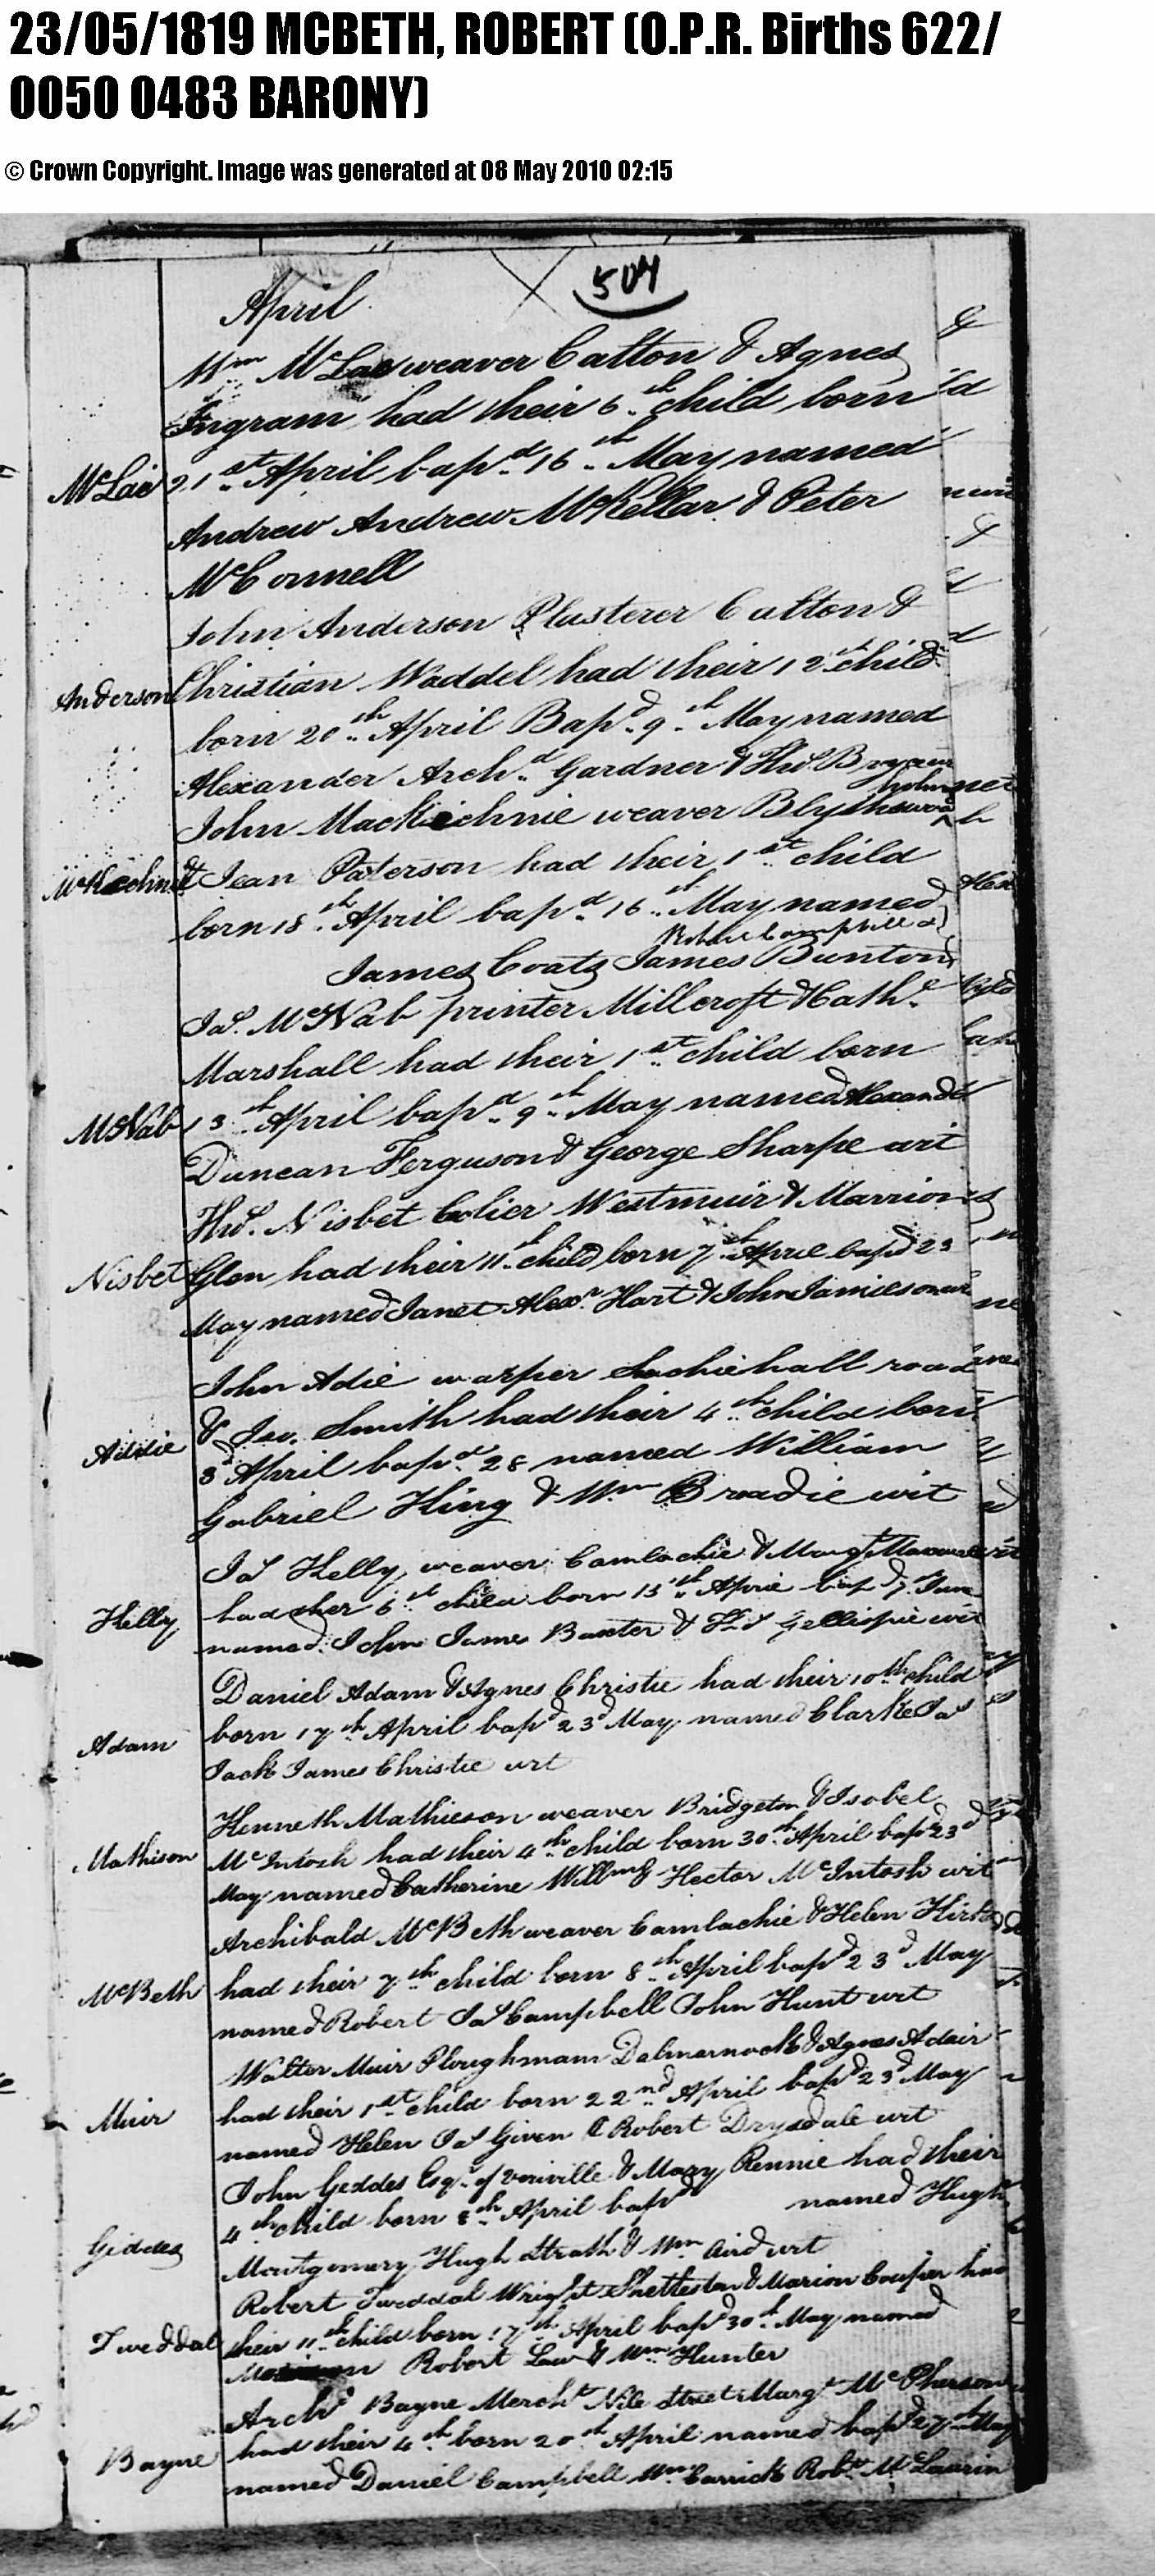 23/05/1819 MCBETH, ROBERT (O.P.R. Births 622/
0050 0483 BARONY)
© Crown Copyright. Image was generated at 08 May 2010 02:15
507
April
Wm McLae weaver Calton & Agnes
Ingram had their 6th child born
McLae 21st April bapd 16th May named
Andrew Andrew McKellar & Peter
McConnell
John Anderson Plasterer Calton &
Anderson Christian Waddel had their 12th child
born 20th April Bapd 9th May named
Alexander Archd Gardner & Hw Bryson
John MacKechnie weaver Blythswood
McKechnie & Jean Paterson had their 1st child
born 18th April bapd 16th May named
Robert Campbell &
James Coats James Bunton
Jas McNab printer Millcroft & Cath
Marshall had their 1st child born
McNab 13th April bapd 9th May named Alexander
Duncan Ferguson & George Sharpe wit
Hw Nisbet Colier Westmuir & Marrion
Nisbet Glen had their 11th child born 7th April bapd 23
May named Janet Alexr Hart & John Jamieson wit
John Adie warper Sauchiehall road
& Smith had their 4th child born
Addie 3d April bapd 28 named William
Gabriel King & Wm Broadie wit
Jas Kelly weaver Camlachie & Margt
Kelly had ther 6th child born 15th April bapd 7th June
named John James Baxter & Gellispie wit
Daniel Adam & Agnes Christie had their 10th child
Adam born 17th April bapd 23d May named Clarke Jas
Jack James Christie wit
Kenneth Mathieson weaver Bridgeton & Isobel
Mathison McIntosh had their 4th child born 30th April bapd 23d
May named Catherine Willm & Hector McIntosh wit
Archibald McBeth weaver Camlachie & Helen Kirk
McBeth had their 7th child born 8th April bapd 23d May
named Robert Jas Campbell John Hunt wit
Walter Muir Ploughmam Dalmarnock & Agnes Adair
Muir had their 1st child born 22nd April bapd 23d May
named Helen Jas Given & Robert Drysdale wit
John Geddes Esqr of Verriville & Mary Rennie had their
Giddes 4th child born 8th April bapd named Hugh
Montgomery Hugh Strath & Wm Aird wit
Robert Tweddal Wright Shettleston & Marion Couper had
Tweddal their 11th child born 17th April bapd 30th May named
Robert Law & Wm Hunter
Archd Bayne Mercht Nile Street & Margt McPherson
Bayne had their 4th born 20th April named bapd 27th May
named Daniel Campbell Wm Carrick Robt McLaurin